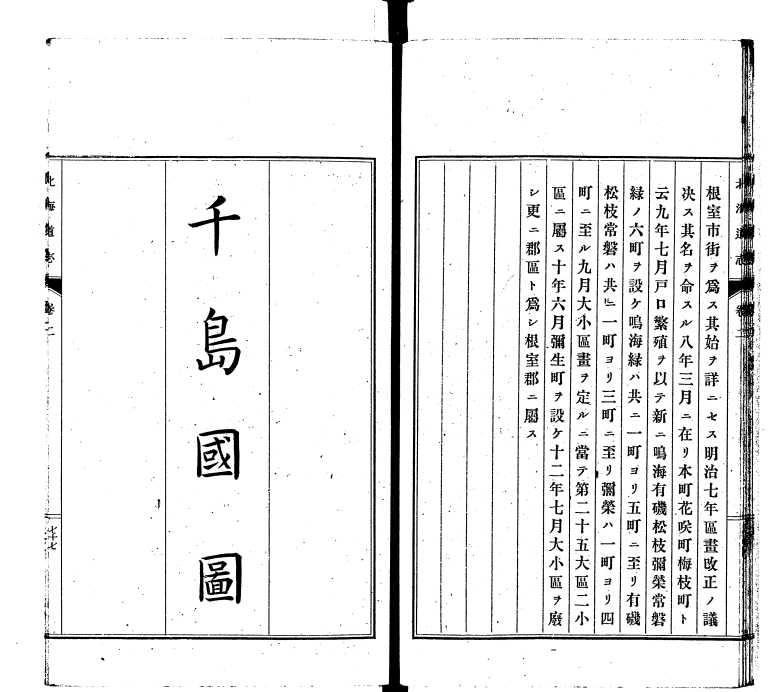 根室市街ヲ爲ス其始ヲ詳ニセス明治七年區畫改正ノ議
决ス其名ヲ命スル八年三月ニ在リ本町花咲町梅枝町ト
云九年七月戸口繁殖ヲ以テ新ニ鳴海有磯松枝彌榮常磐
緑ノ六町ヲ設ケ鳴海緑ハ共ニ一町ヨリ五町ニ至リ有磯
松枝常磐ハ共ニ一町ヨリ三町ニ至リ彌榮ハ一町ヨリ四
町ニ至ル九月大小區畫ヲ定ルニ當テ第二十五大區二小
區ニ屬ス十年六月彌生町ヲ設ケ十二年七月大小區ヲ廢
シ更ニ郡區ト爲シ根室郡ニ屬ス
千島國圖
北海道志
卷二